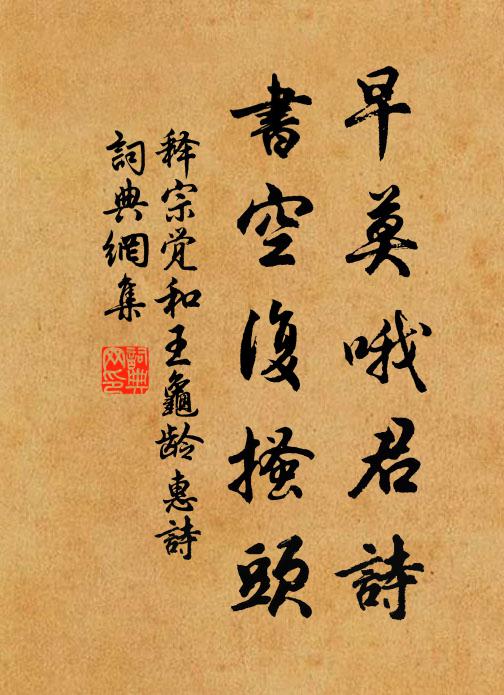 早莫哦君詩
書空復搔頭
释宗觉和王龜龄惠詩
詞典網集
詞典网印